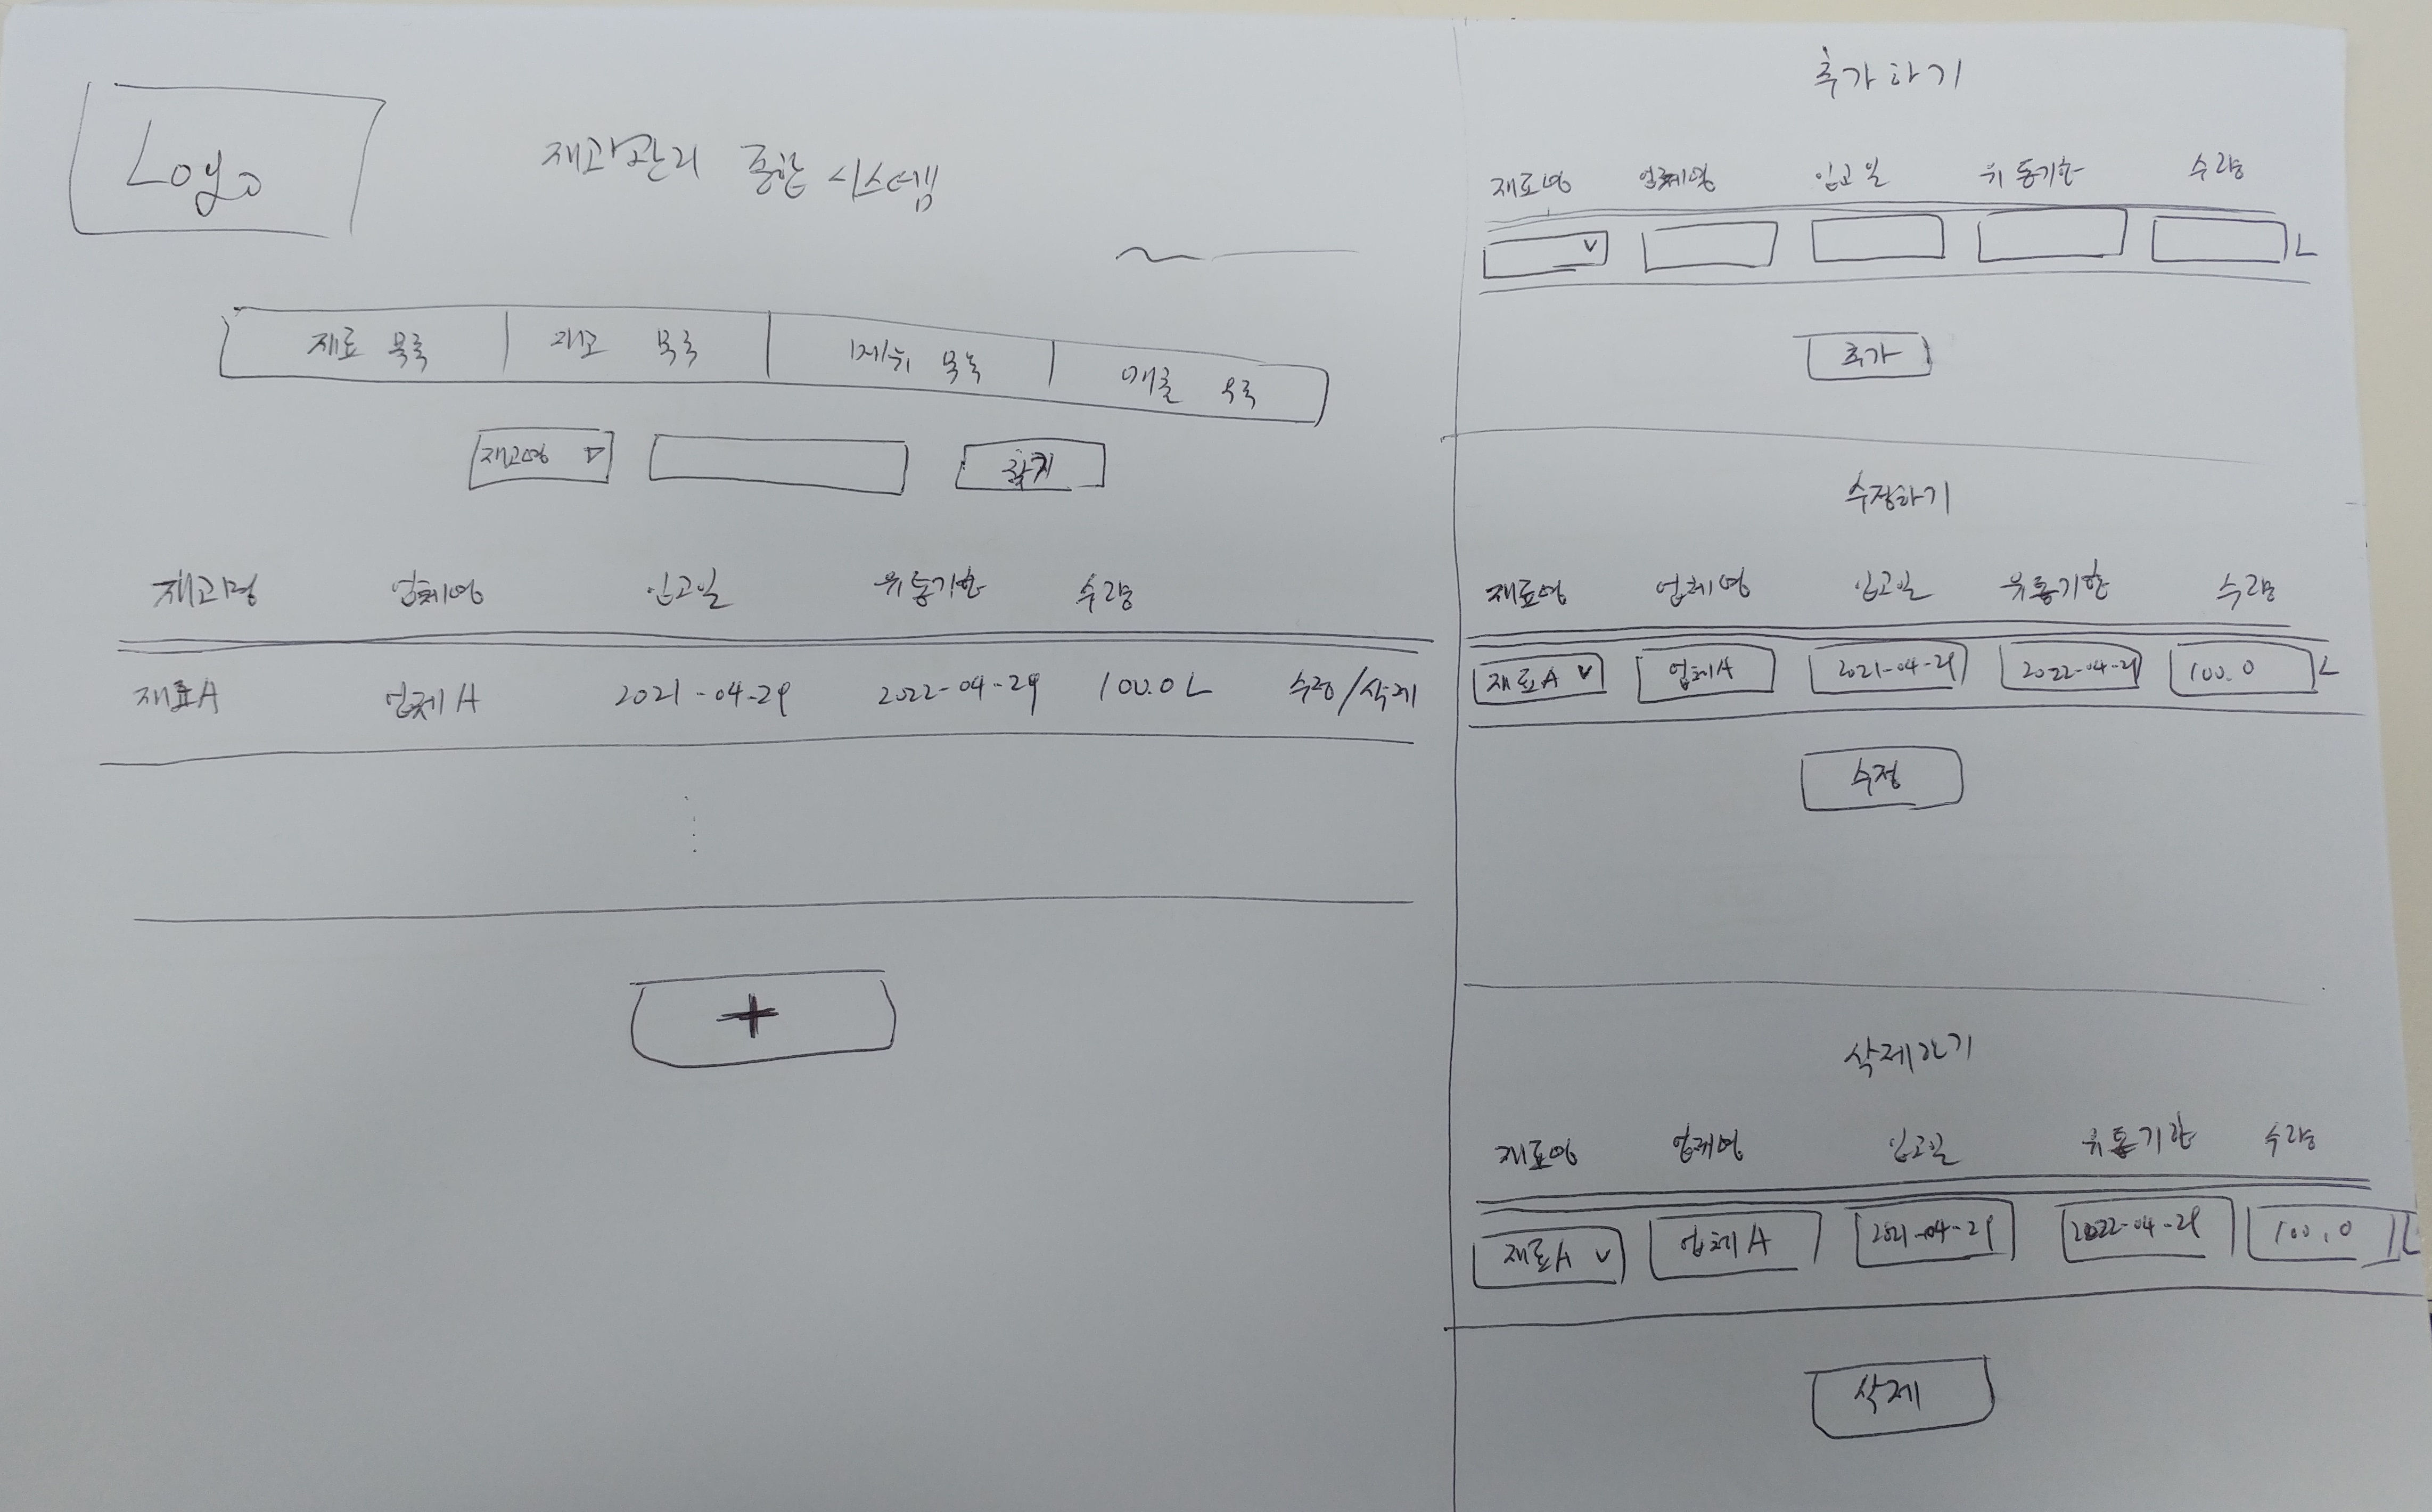 Logo
재고관리 종합 시스템
재료 목록 재고 목록 제휴 목록 매출 목록
재고명 ▽
재고명 업체명 입고일 유통기한 수량
재료A 업체A 2021-04-29 2022-04-29 100.0L 수정/삭제
+
추가하기
재료명 업체명 입고일 유통기한 수량
L
추가
수정하기
재료명 업체명 입고일 유통기한 수량
재료A 업체A 2021-04-29 2022-04-29 100.0 L
수정
삭제하기
재료명 업체명 입고일 유통기한 수량
재료A 업체A 2021-04-29 2022-04-29 100.0 L
삭제